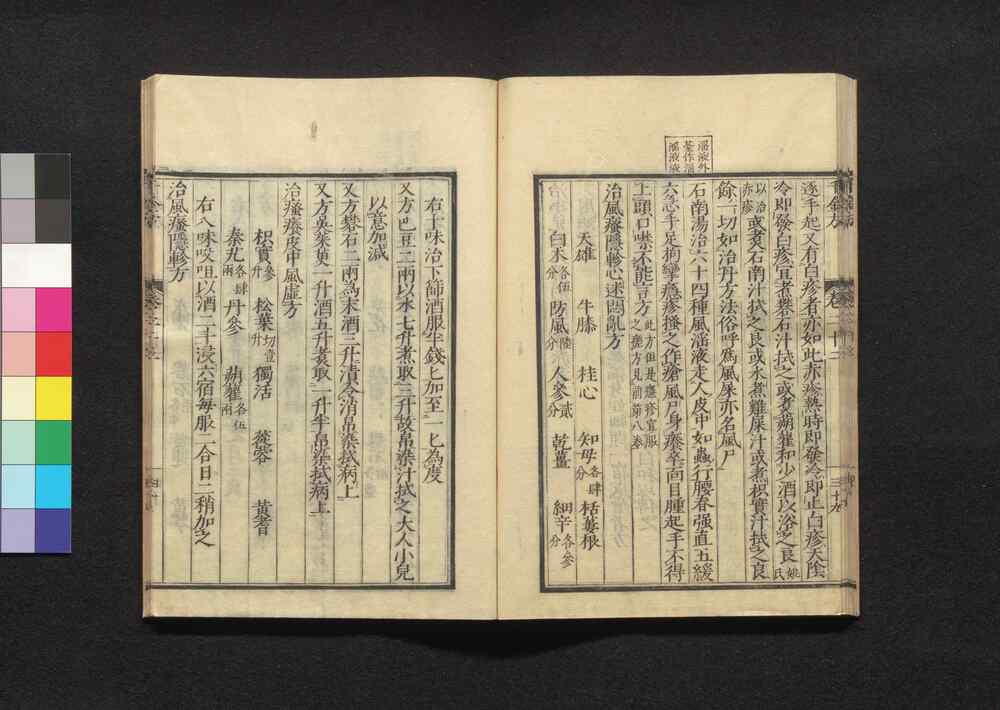 淫液外
臺作淫
濕液液
逐手起又有白疹者亦如此赤疹熱時即發冷即止白疹天陰
冷即發白疹宜煮礬石汁拭之或煮蒴藋和少酒以浴之良姚氏
以治赤疹或煮石南汁拭之良或水煮雞屎汁或煮枳實汁拭之良
餘一切如治丹方法俗呼為風屎亦名風尸
石南湯治六十四種風淫液走人皮中如蟲行腰脊強直五緩
六急手足拘攣癮疹搔之作瘡風尸身癢卒面目腫起手不得
上頭口噤不能言方此方但是癮疹宜服之癮方見前第八卷
治風瘙癮軫心迷悶亂方
天雄 牛膝 桂心 知母各肆分 栝蔞根
白朮各伍分 防風陸分 人參貳分 乾薑 細辛各參分
卷二十二
三十九
右十味治下篩酒服半錢匕加至一匕為度
又方巴豆二兩以水七升煮取三升故帛染汁拭之大人小兒
以意加減
又方礬石二兩為末酒三升漬令消帛染拭病上
又方吳茱萸一升酒五升煮取一升半帛染拭病上
治瘙癢皮中風虛方
枳實參升 松葉切壹升 獨活 蓯蓉 黃耆
秦艽各肆兩 丹參 蒴藋各伍兩
右八味㕮咀以酒二斗浸六宿每服二合日二稍加之
治風瘙隱軫方